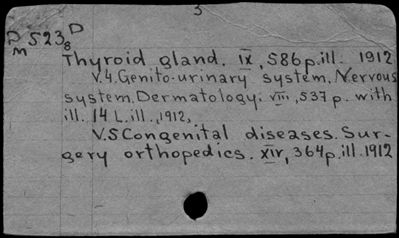 3
D M 523 8 D
Thyroid gland. IX, 586p. ill. 1912
V.4. Genito-urinary system. Nervous
system. Dermatology. VIII, 537 p. with
ill. 14 L. ill., 1912,
V.5 Congenital diseases. Sur-
gery orthopedics. XIV, 364p. ill. 1912